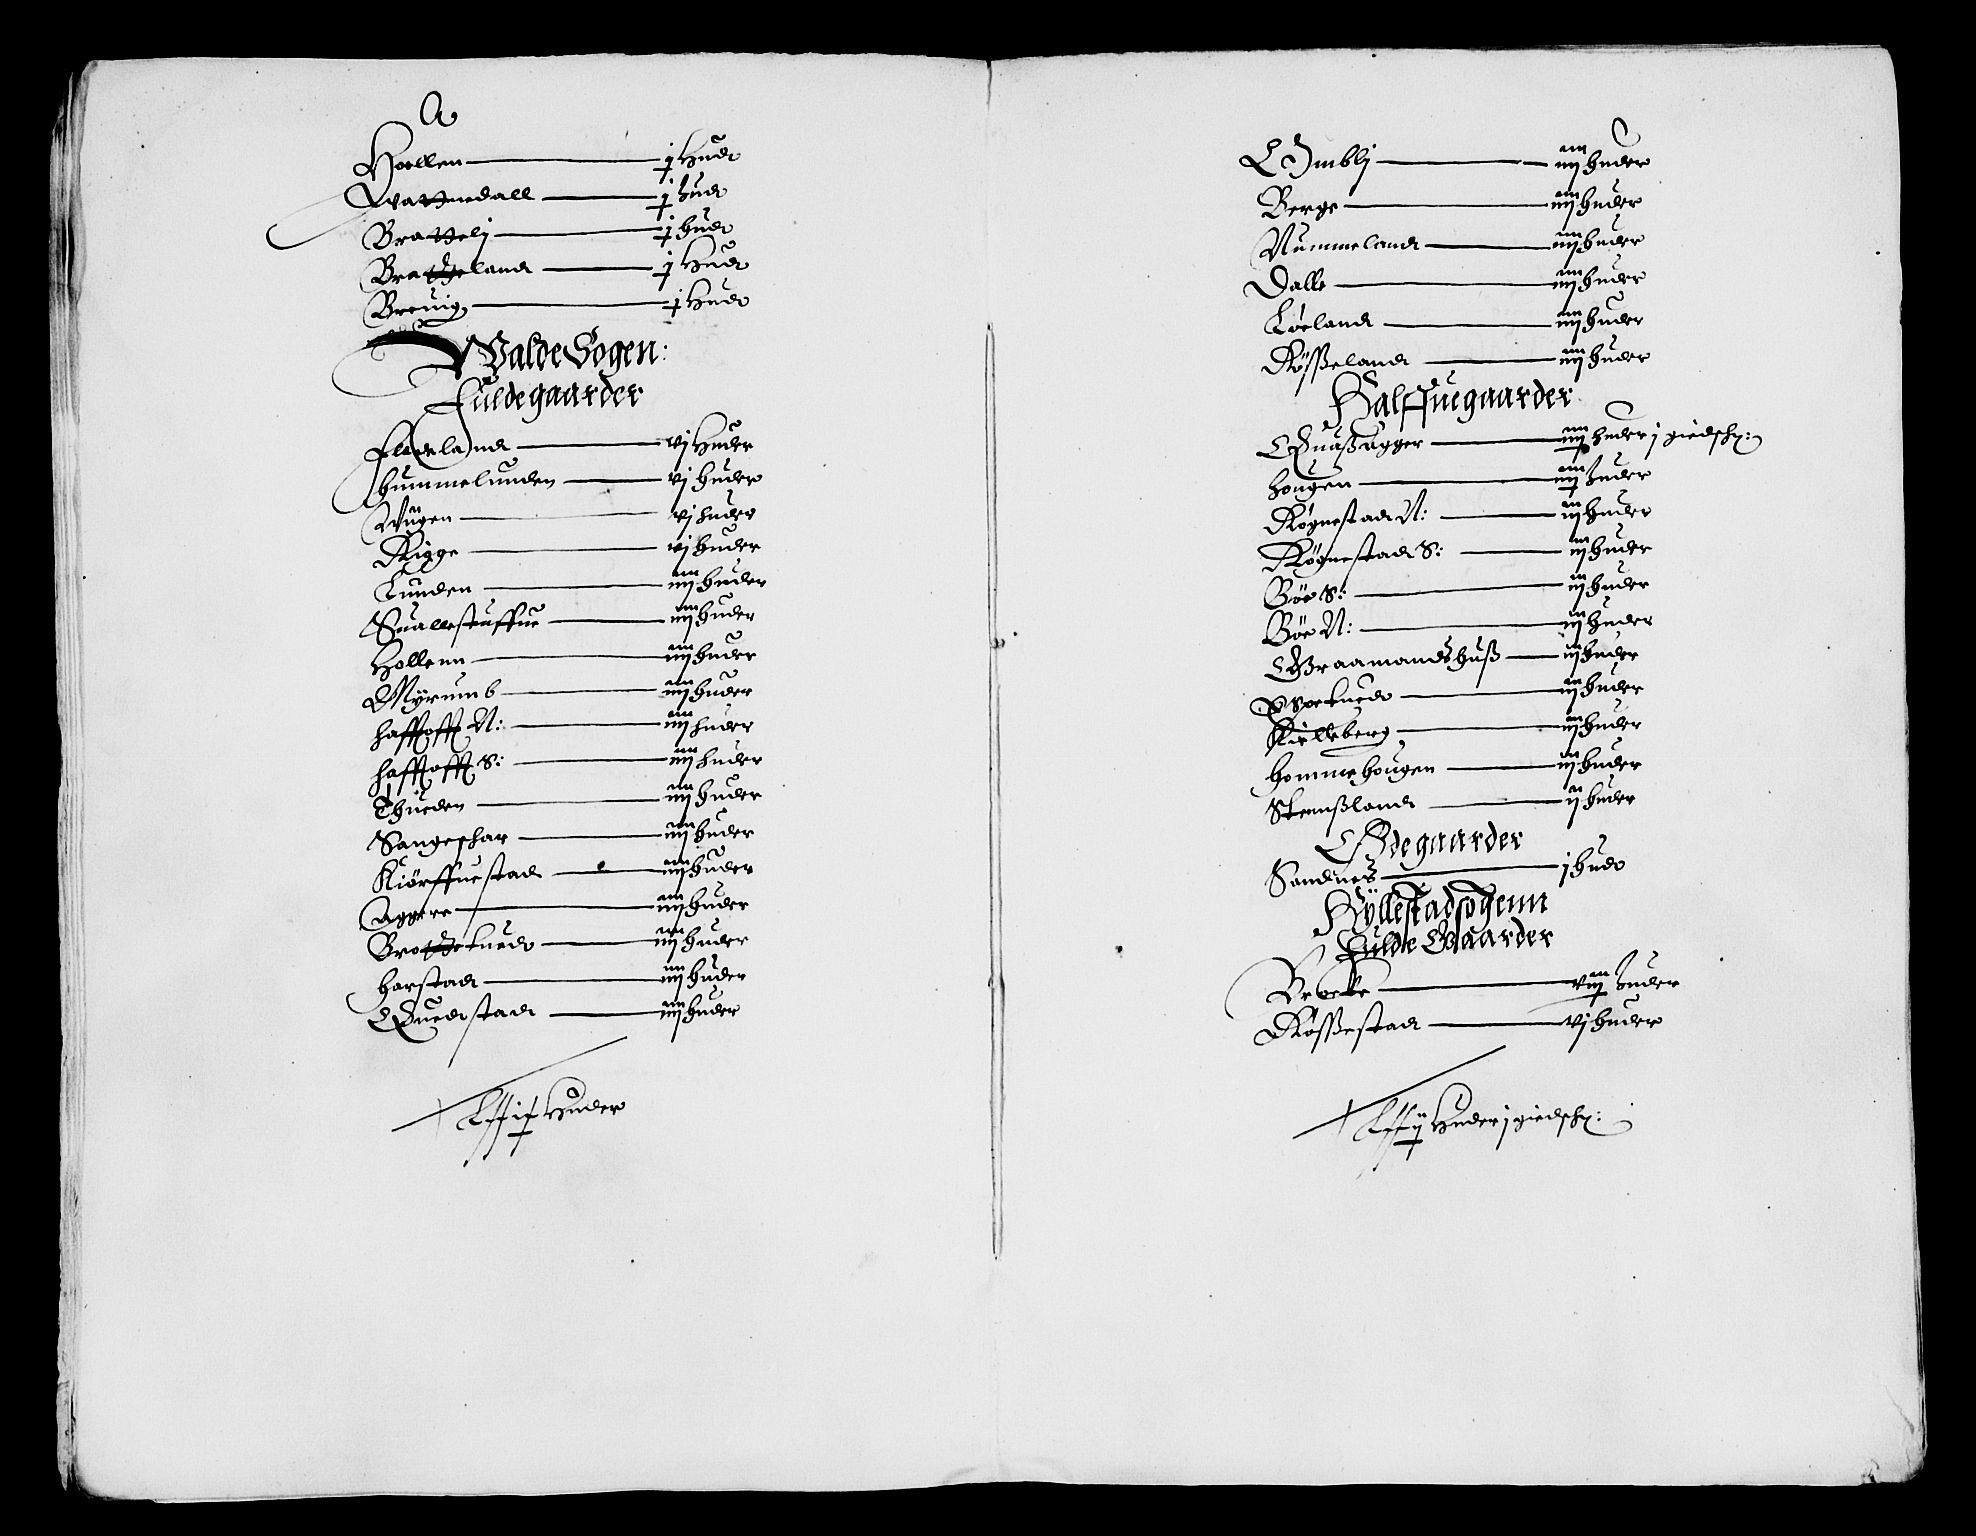 Hoellen — j Hudt
Wattnedall — j hudt
Brattelj — j hudt
Bratteland — j Hudt
Breuig — j Hudt
Walde Sogen:
Fulde gaarder
Flaeland — vj Huder
hummelunden — vj huder
Wiigen — vj huder
Rigge — vj huder
Lunden — iiij huder
Suallestuffue — iiij huder
Hollenn — iiij huder
Myrumb — iiij huder
hafftofft N: — iiij huder
hafftofft S: — iiij huder
Thueden — iiij huder
Sangeshar — iiij huder
Kiörffuestad — iiij huder
Aggere — iiij huder
Brottetuedt — iiij huder
harstad — iiij huder
Quedstad — iiij huder
Huder
Omblj — iiij huder
Berge — iiij huder
Nummeland — iiij huder
Dalle — iiij huder
Löeland — iiij huder
Rösßeland — iiij huder
Halffue gaarder
Quaßagger — iiij huder j giedsk:
hougen — iiij huder
Rögnestad N: — iij huder
Rögnestad S: — iij huder
Böe S: — iij huder
Böe N: — iij huder
Graamandshuß — iij huder
tuedt — iij huder
Kielleberg — iij huder
homme hougen — iij huder
Stennßland — ij huder
Ödegaarder
Sandnes — j hudt
Hyllestad sogenn
Fulde Gaarder
Brocke — viij huder
Rösßestad — vj huder
Huder j giedsk: